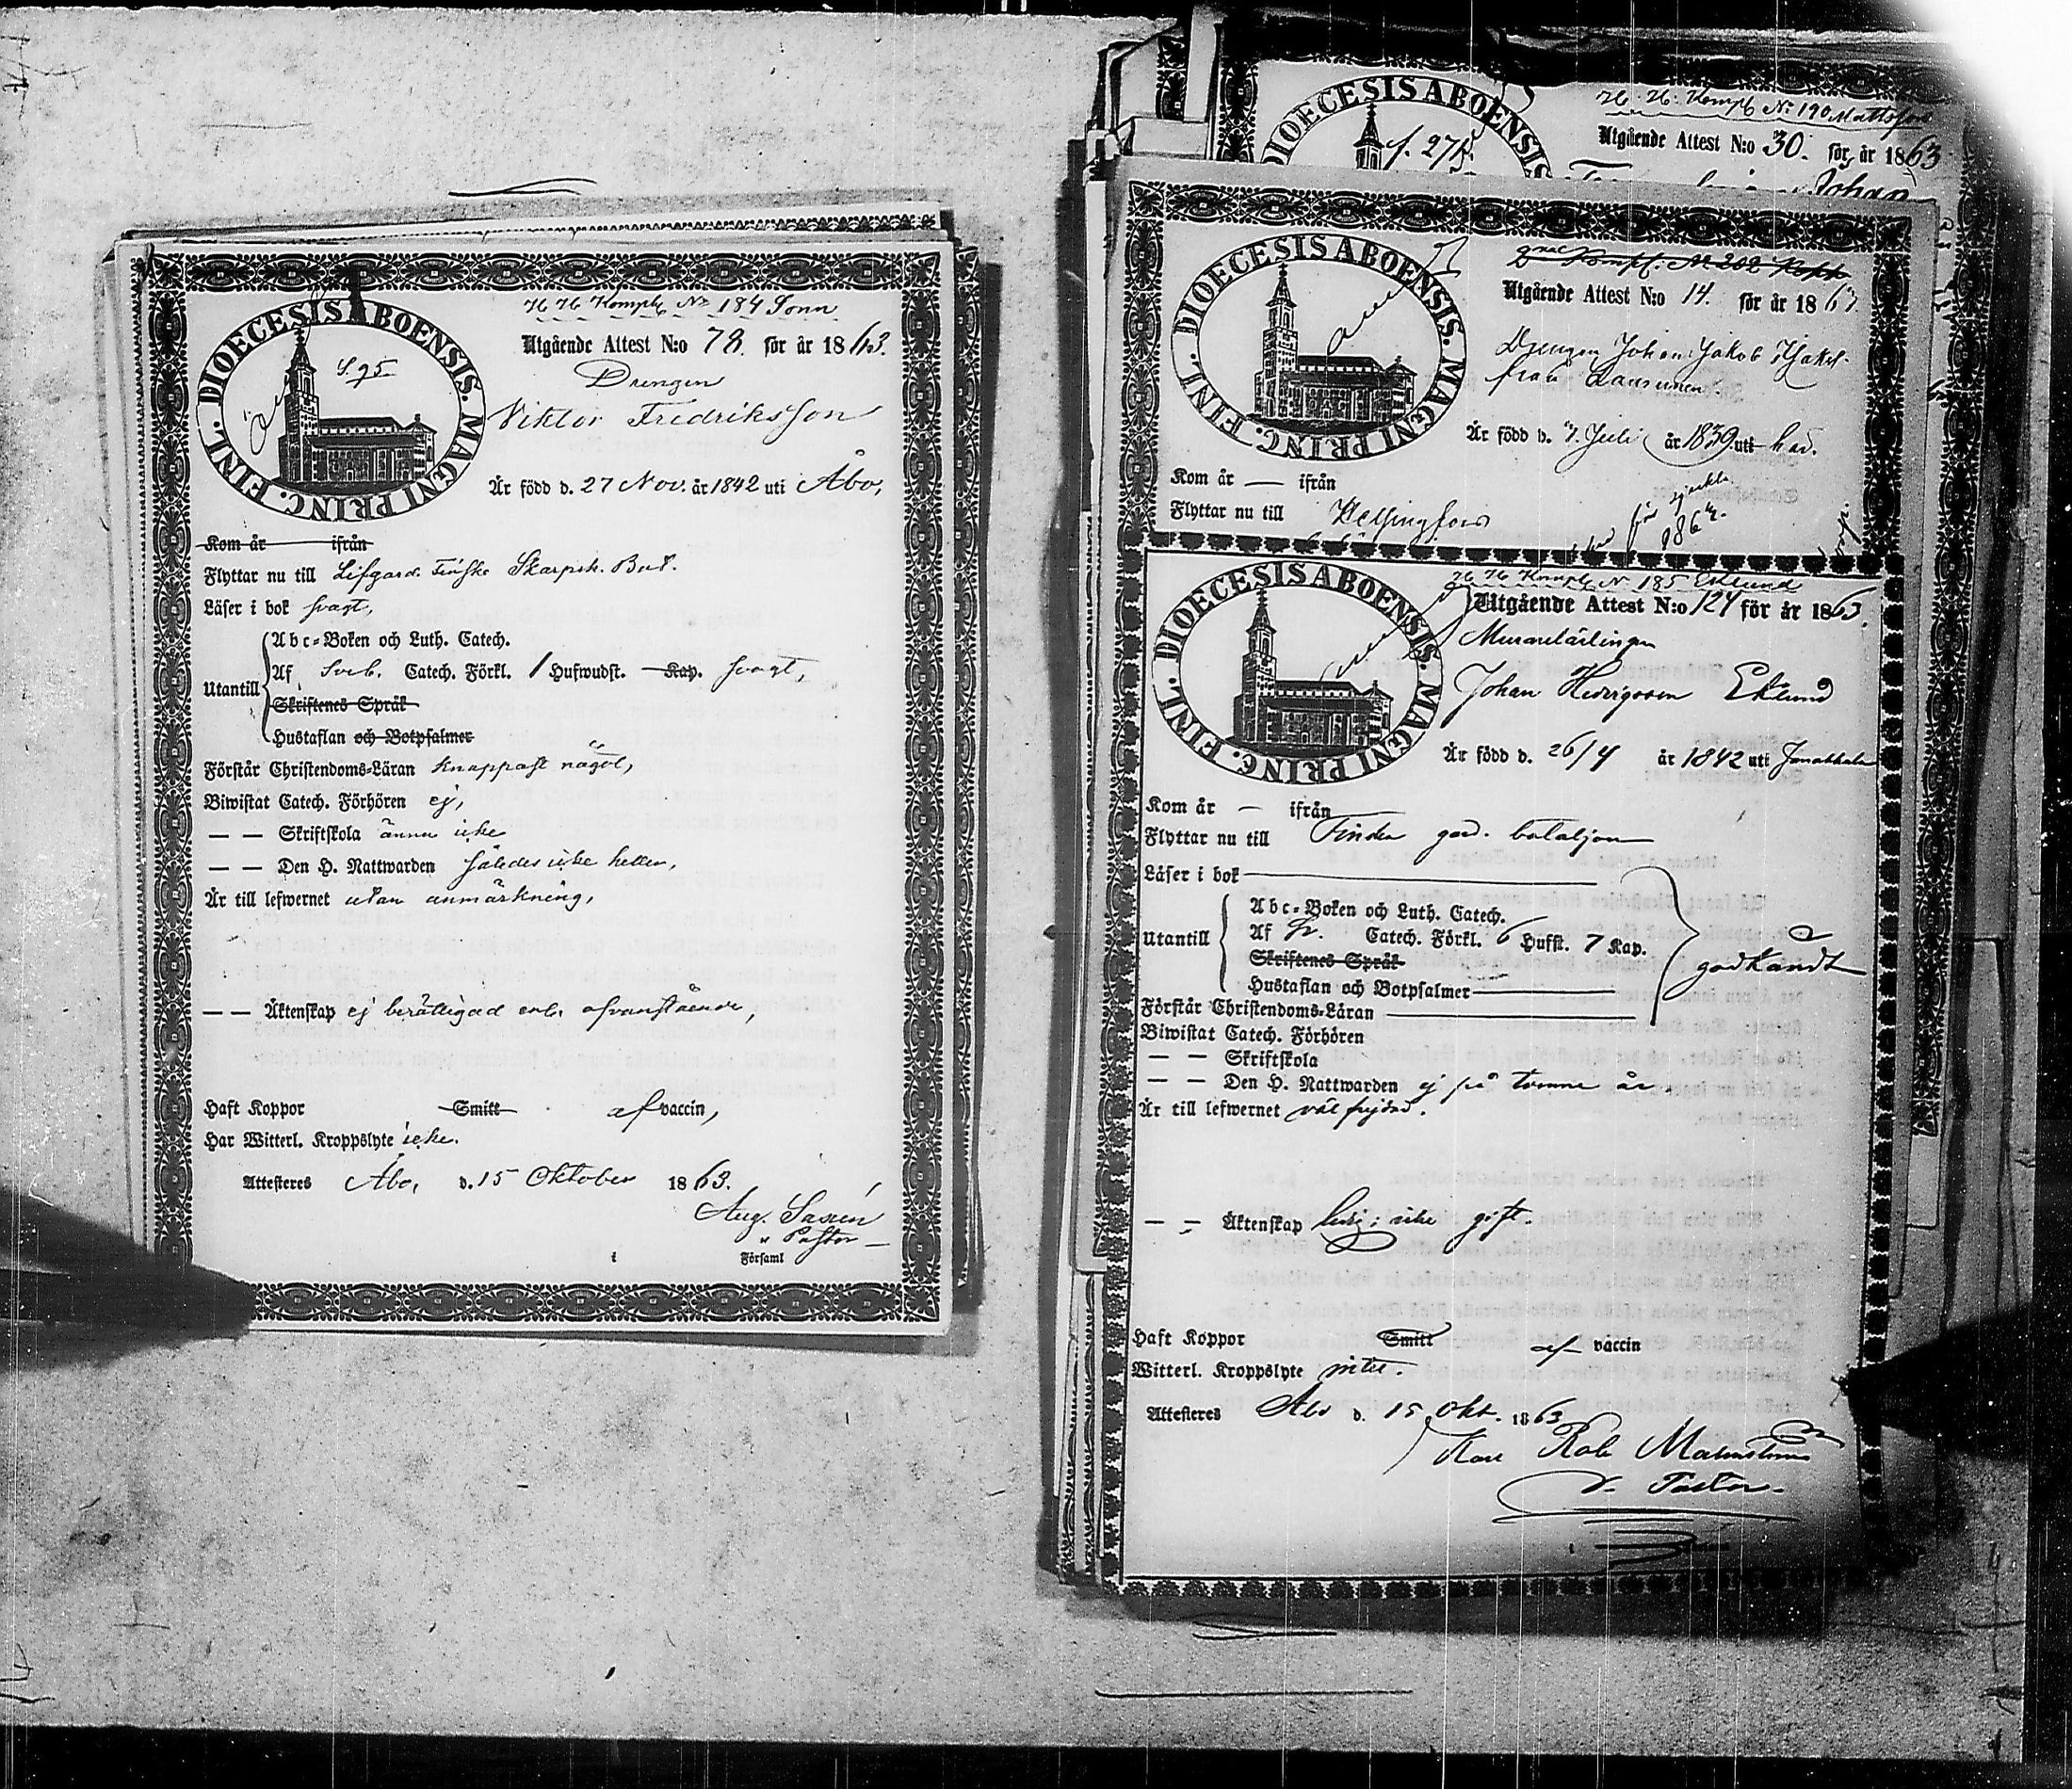 H H Komp. No 184 Sonn
Utgående Attest N:o 78. för år 1863.
DIOECESIS ABOENSIS. MAGNI PRINC. FINL.
S. 95
Drengen
Viktor Fredriksson
Är född d. 27 Nov. år 1842 uti Åbo,
Kom år ifrån
Flyttar nu till Lifgard. Finska Skarpsk. Bat.
Läser i bok svagt,
Abc-Boken och Luth. Catech.
Utantill Af Sveb. Catech. Förkl. 1 Hufwudst. Kap. svagt,
Skriftenes Språk
Hustaflan och Botpsalmer
Förstår Christendoms-Läran knappast något,
Biwistat Catech. Förhören ej,
— — Skriftskola ännu icke
— — Den H. Nattwarden således icke heller,
Är till lefwernet utan anmärkning,
— — Äktenskap ej berättigad enl. ofvanstående,
Haft Koppor Smitt af vaccin,
Har Witterl. Kroppslyte icke.
Attesteres Åbo, d. 15 Oktober 1863.
Aug.
v Pastor
i Församl
H. H. Komp No 190 Mattsson
Utgående Attest N:o 30. för år 1863
DIOECESIS ABOENSIS
f. 271.
Johan
Komp. No 202
Utgående Attest N:o 14. för år 186
DIOECESIS ABOENSIS. MAGNI PRINC. FINL.
Drengen Johan Jakob
från
Är född d. 7. Juli år 1839 uti
Kom år — ifrån
Flyttar nu till Helsingfors
H H Komp No 185 Eklund
Utgående Attest N:o 124 för år 1863.
DIOECESIS ABOENSIS. MAGNI PRINC. FINL.
Murarelärlingen
Johan Eklund
Är född d. 26/4 år 1842 uti Janakkala
Kom år — ifrån
Flyttar nu till Finska gard. bataljon
Läser i bok
Abc-Boken och Luth. Catech.
Utantill Af Catech. Förkl. 6 Hufst. 7 Kap.
godkändt
Skriftenes Språk
Hustaflan och Botpsalmer
Förstår Christendoms-Läran
Biwistat Catech. Förhören
— — Skriftskola
— — Den H. Nattwarden ej på tvenne år
Är till lefwernet väl frejdad.
— — Äktenskap ledig; icke gift.
Haft Koppor Smitt af vaccin
Witterl. Kroppslyte intet.
Attesteres Åbo d. 15 Okt. 1863
Karl Rob Malmström
v. Pastor.